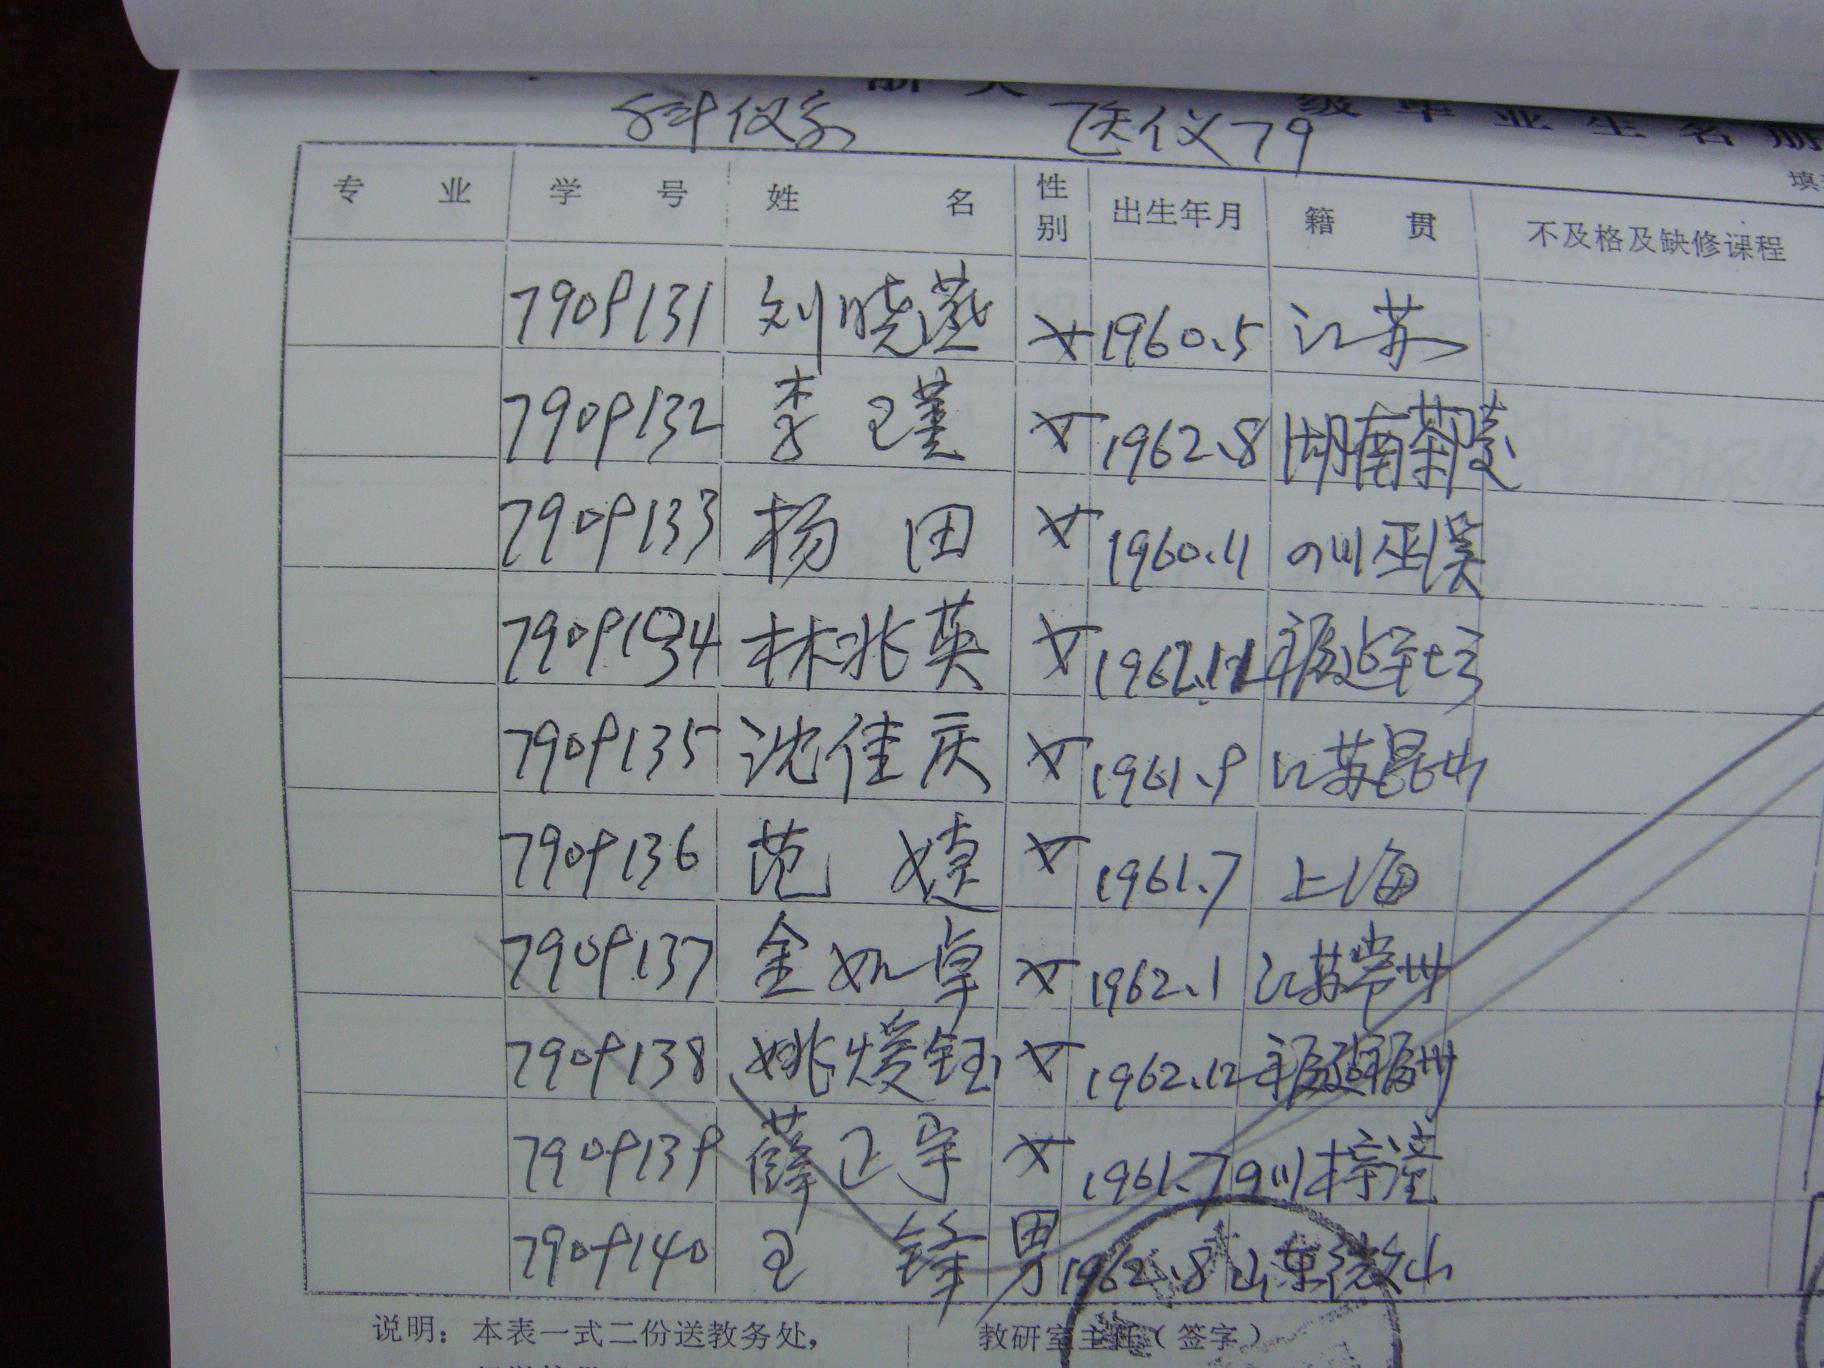 浙大 级毕业生名册
科仪系 医仪79
填
专业 学号 姓名 性别 出生年月 籍贯 不及格及缺修课程
7909131 刘晓燕 女 1960.5 江苏
7909132 李瑾 女 1962.8 湖南茶陵
7909133 杨田 女 1960.11 四川巫溪
7909134 林兆英 女 1962.12 福建
7909135 沈佳庆 女 1961.9 江苏昆山
7909136 范婕 女 1961.7 上海
7909137 金如卓 女 1962.1 江苏常州
7909138 姚爱钰 女 1962.12 福建福州
7909139 薛正宇 女 1961.7 四川梓潼
7909140 王锋 男 1962.8 山东微山
说明：本表一式二份送教务处， 教研室主任（签字）